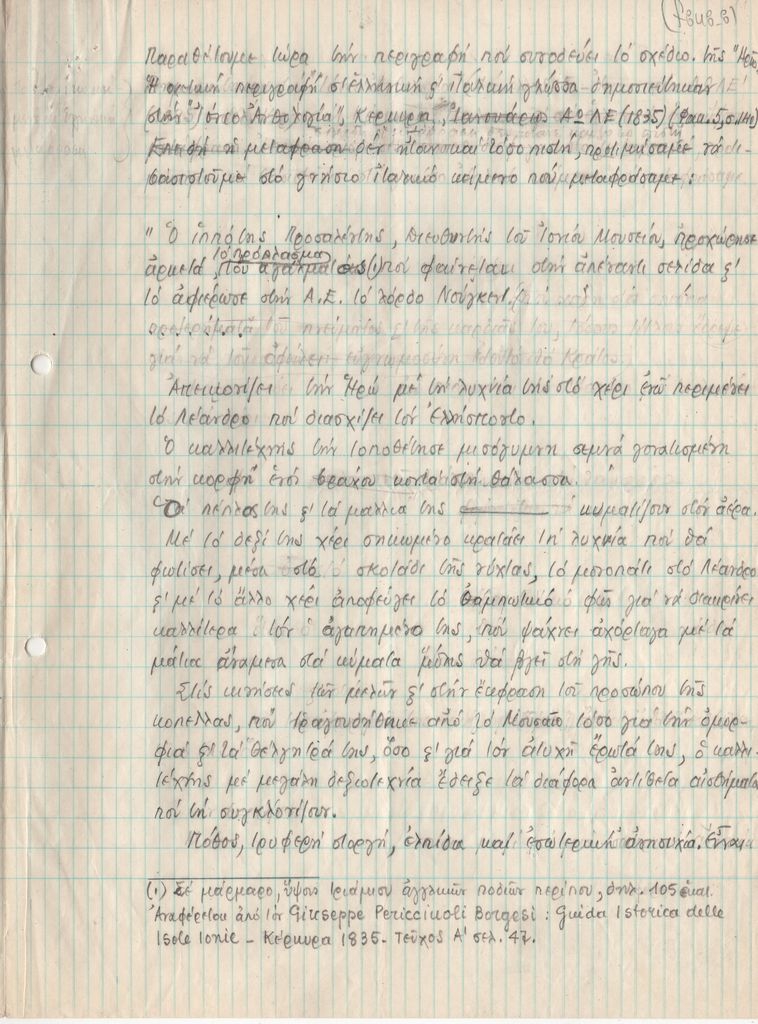 Παραθέτουμε τώρα τὴν περιγραφὴ ποὺ συνοδεύει τὸ σχέδιο τῆς "Ἡρῶ
Ἡ σχετικὴ περιγραφὴ σὲ ἑλληνικὴ ξ' ἰταλικὴ γλῶσσα δημοσιεύτηκαν
στὴν "Ἰόνιο Ἀνθολογία", Κέρκυρα, Ἰανουάριος ΑΩΛΕ (1835) (Φακ. 5,
Ἐπειδὴ ἡ μετάφραση δὲν ἦταν καὶ τόσο πιστή, προτιμήσαμε νὰ
βασιστοῦμε στὸ γνήσιο ἰταλικὸ κείμενο ποὺ μεταφράσαμε:
"Ὁ ἱππότης Προσαλέντης, Διευθυντὴς τοῦ Ἰονίου Μουσείου, προχώρησε
τὸ πρόπλασμα
ἀρκετά, τοῦ ἀγάλματος (1) ποὺ φαίνεται στὴν ἀπέναντι σελίδα ξ'
τὸ ἀφιέρωσε στὴν Α.Ε. τὸ λόρδο Νούγκεντ.
Ἀπεικονίζει τὴν Ἡρὼ μὲ τὴ λυχνία της στὸ χέρι ἐνῶ περιμένει
τὸ Λέανδρο ποὺ διασχίζει τὸν Ἑλλήσποντο.
Ὁ καλλιτέχνης τὴν τοποθέτησε μισόγυμνη σεμνὰ γονατισμένη
στὴν κορφὴ ἑνὸς βράχου κοντὰ στὴ θάλασσα.
Ὁ πέπλος της ξ' τὰ μαλλιά της κυματίζουν στὸν ἀέρα.
Μὲ τὸ δεξί της χέρι σηκωμένο κρατάει τὴ λυχνία ποὺ θὰ
φωτίσει, μέσα στὸ σκοτάδι τῆς νύχτας, τὸ μονοπάτι στὸ Λέανδρο
ξ' μὲ τὸ ἄλλο χέρι ἀποφεύγει τὸ θαμπωτικὸ φῶς γιὰ νὰ διακρίνει
καλλίτερα τὸν ἀγαπημένο της, ποὺ ψάχνει ἀχόρταγα μὲ τὰ
μάτια ἀνάμεσα στὰ κύματα μήπως θὰ βγεῖ στὴ γῆς.
Στὶς κινήσεις τῶν μελῶν ξ' στὴν ἔκφραση τοῦ προσώπου τῆς
κοπέλλας, ποὺ τραγουδήθηκε ἀπὸ τὸ Μουσαῖο τόσο γιὰ τὴν ὀμορ-
φιὰ ξ' τὰ θέλγητρά της, ὅσο ξ' γιὰ τὸν ἀτυχῆ ἔρωτά της, ὁ καλλι-
τέχνης μὲ μεγάλη δεξιοτεχνία ἔδειξε τὰ διάφορα ἀντίθετα αἰσθήματα
ποὺ τὴ συγκλονίζουν.
Πόθος, τρυφερὴ στοργή, ἐλπίδα καὶ ἐσωτερικὴ ἀνησυχία.
(1) Σὲ μάρμαρο, ὕψους τριάμισυ ἀγγλικῶν ποδιῶν περίπου, δηλ. 105 ἑκατ.
Ἀναφέρεται ἀπὸ τὸν Giuseppe Pericciuoli Borgesi: Guida Istorica delle
Isole Ionie - Κέρκυρα 1835. Τεῦχος Α' σελ. 47.